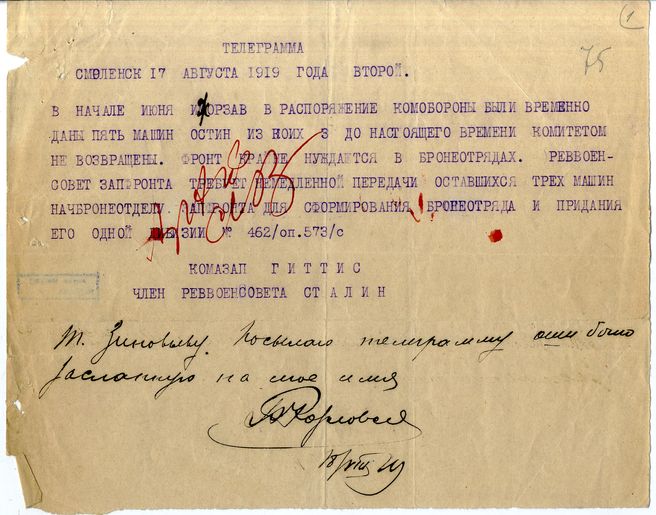 1
75
ТЕЛЕГРАММА
СМОЛЕНСК 17 АВГУСТА 1919 ГОДА ВТОРОЙ.
В НАЧАЛЕ ИЮНЯ ИЖОРЗАВ В РАСПОРЯЖЕНИЕ КОМОБОРОНЫ БЫЛИ ВРЕМЕННО
ДАНЫ ПЯТЬ МАШИН ОСТИН ИЗ КОИХ 3 ДО НАСТОЯЩЕГО ВРЕМЕНИ КОМИТЕТОМ
НЕ ВОЗВРАЩЕНЫ. ФРОНТ КРАЙНЕ НУЖДАЕТСЯ В БРОНЕОТРЯДАХ. РЕВВОЕН-
СОВЕТ ЗАПФРОНТА ТРЕБУЕТ НЕМЕДЛЕННОЙ ПЕРЕДАЧИ ОСТАВШИХСЯ ТРЕХ МАШИН
НАЧБРОНЕОТДЕЛУ ЗАПФРОНТА ДЛЯ СФОРМИРОВАНИЯ БРОНЕОТРЯДА И ПРИДАНИЯ
ЕГО ОДНОЙ ДИВИЗИИ № 462/оп.573/с
КОМАЗАП ГИТТИС
ЧЛЕН РЕВВОЕНСОВЕТА СТАЛИН
т. Зиновьеву. Посылаю телеграмму ошибочно
засланную на мое имя